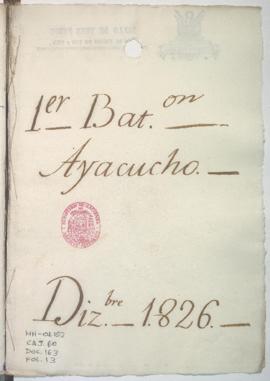 1er Bat.on
Ayacucho.
Diz.bre 1826.
MH-04152
CAJ. 60
DOC. 163
FOL. 13